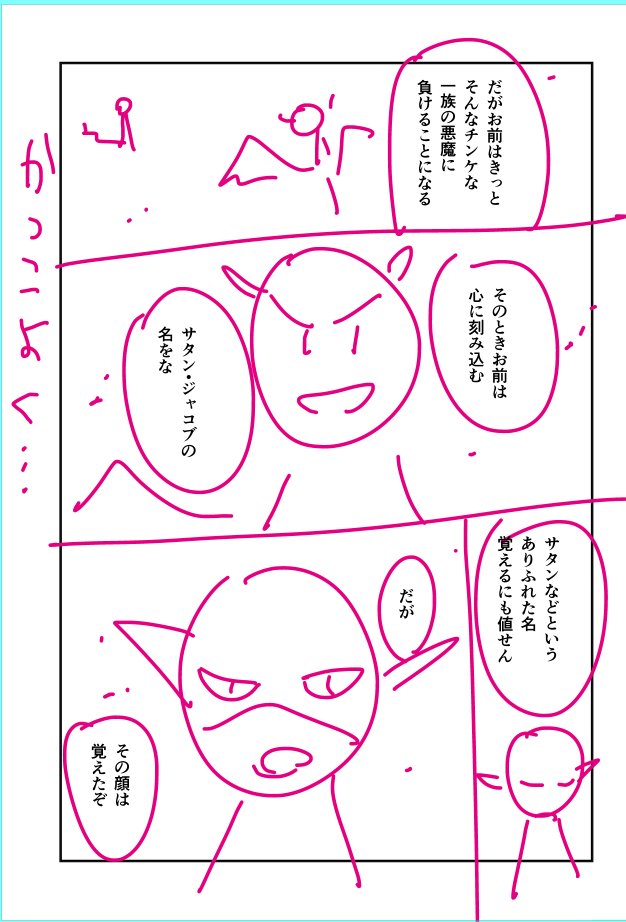 だがお前はきっと
そんなチンケな
一族の悪魔に
負けることになる
そのときお前は
心に刻み込む
サタン・ジャコブの
名をな
サタンなどという
ありふれた名
覚えるにも値せん
だが
その顔は
覚えたぞ
かっこよく…